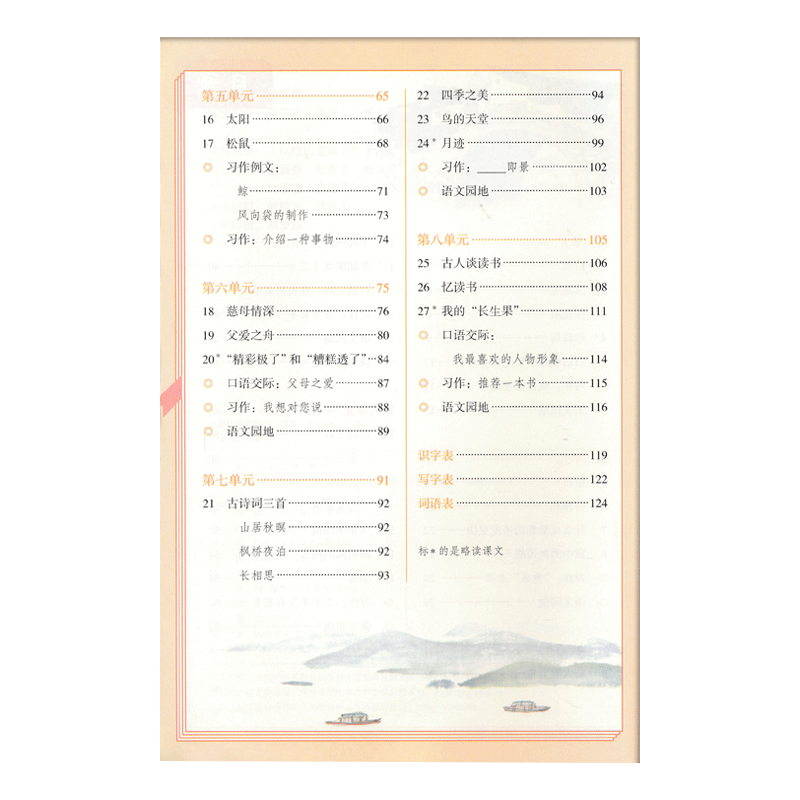 第五单元……………………………65
16 太阳……………………………66
17 松鼠……………………………68
习作例文：
鲸……………………………71
风向袋的制作………………73
习作：介绍一种事物…………74
第六单元……………………………75
18 慈母情深………………………76
19 父爱之舟………………………80
20*“精彩极了”和“糟糕透了”…84
口语交际：父母之爱…………87
习作：我想对您说……………88
语文园地………………………89
第七单元……………………………91
21 古诗词三首……………………92
山居秋暝……………………92
枫桥夜泊……………………92
长相思………………………93
22 四季之美………………………94
23 鸟的天堂………………………96
24*月迹……………………………99
习作：____即景……………102
语文园地……………………103
第八单元…………………………105
25 古人谈读书…………………106
26 忆读书………………………108
27*我的“长生果”………………111
口语交际：
我最喜欢的人物形象……114
习作：推荐一本书…………115
语文园地……………………116
识字表……………………………119
写字表……………………………122
词语表……………………………124
标*的是略读课文